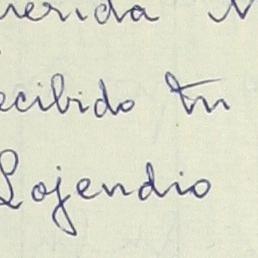 uerida
ecibido tu
Lojendio